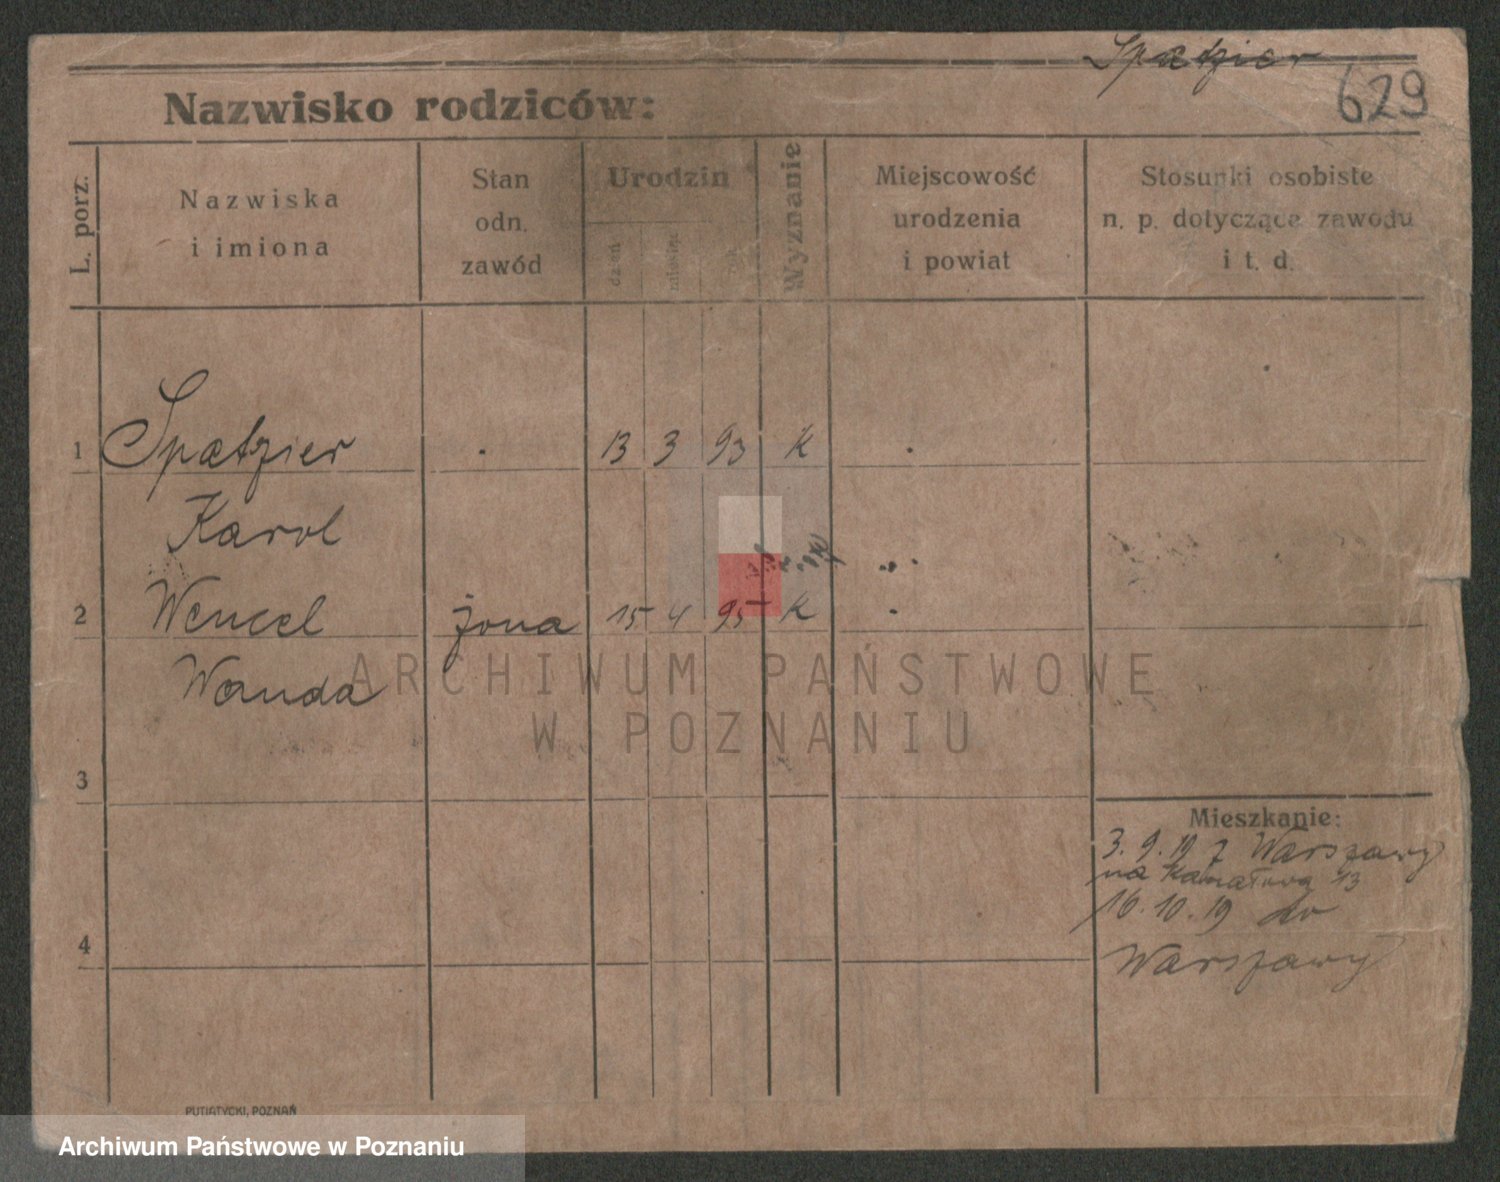 Spatzier
629
Nazwisko rodziców:
L. porz.
Nazwiska
i imiona
Stan
odn.
zawód
Urodzin
dzień
miesiąc
rok
Wyznanie
Miejscowość
urodzenia
i powiat
Stosunki osobiste
n. p. dotyczące zawodu
i t. d.
1 Spatzier 13 3 93 K
Karol
2 Wencel żona 15 4 95 K
Wanda
ARCHIWUM PAŃSTWOWE
W POZNANIU
3
Mieszkanie:
3.9.19 z Warszawy
na 13
16.10.19 do
4
Warszawy
PUTIATYCKI, POZNAŃ
Archiwum Państwowe w Poznaniu